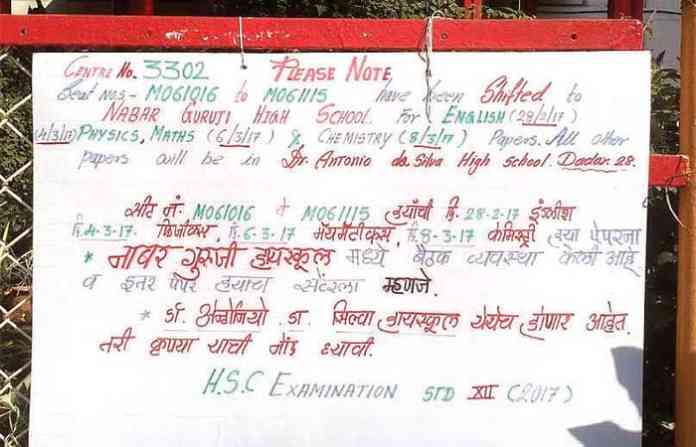 CENTRE No. 3302 PLEASE NOTE
Seat nos- M061016 to M061115 have been Shifted to
NABAR GURUJI HIGH SCHOOL. For ENGLISH (28/2/17)
(4/3/17) PHYSICS, MATHS (6/3/17) & CHEMISTRY (8/3/17) Papers. All other
papers will be in Dr. Antonio da. Silva High school. Dadar. 28.
सीट नं. M061016 ते M061115 ह्यांची दि. 28-2-17 इंग्लीश
दि.4-3-17. फिजीक्स, दि.6-3-17 मॅथमॅटीक्स, दि.8-3-17 केमिस्ट्री ह्या पेपरना
* नाबर गुरुजी हायस्कूल मध्ये बैठक व्यवस्था केली आहे
व इतर पेपर ह्याच सेंटरला म्हणजे.
* डॉ. अँन्टोनियो डा. सिल्वा हायस्कूल येथेच होणार आहेत.
तरी कृपया याची नोंद घ्यावी.
H.S.C EXAMINATION STD XII (2017)